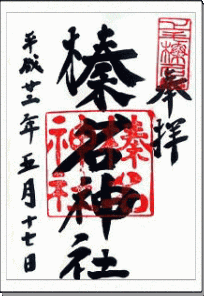 奉拝
榛名神社
平成廿三年五月十七日
榛名
神社